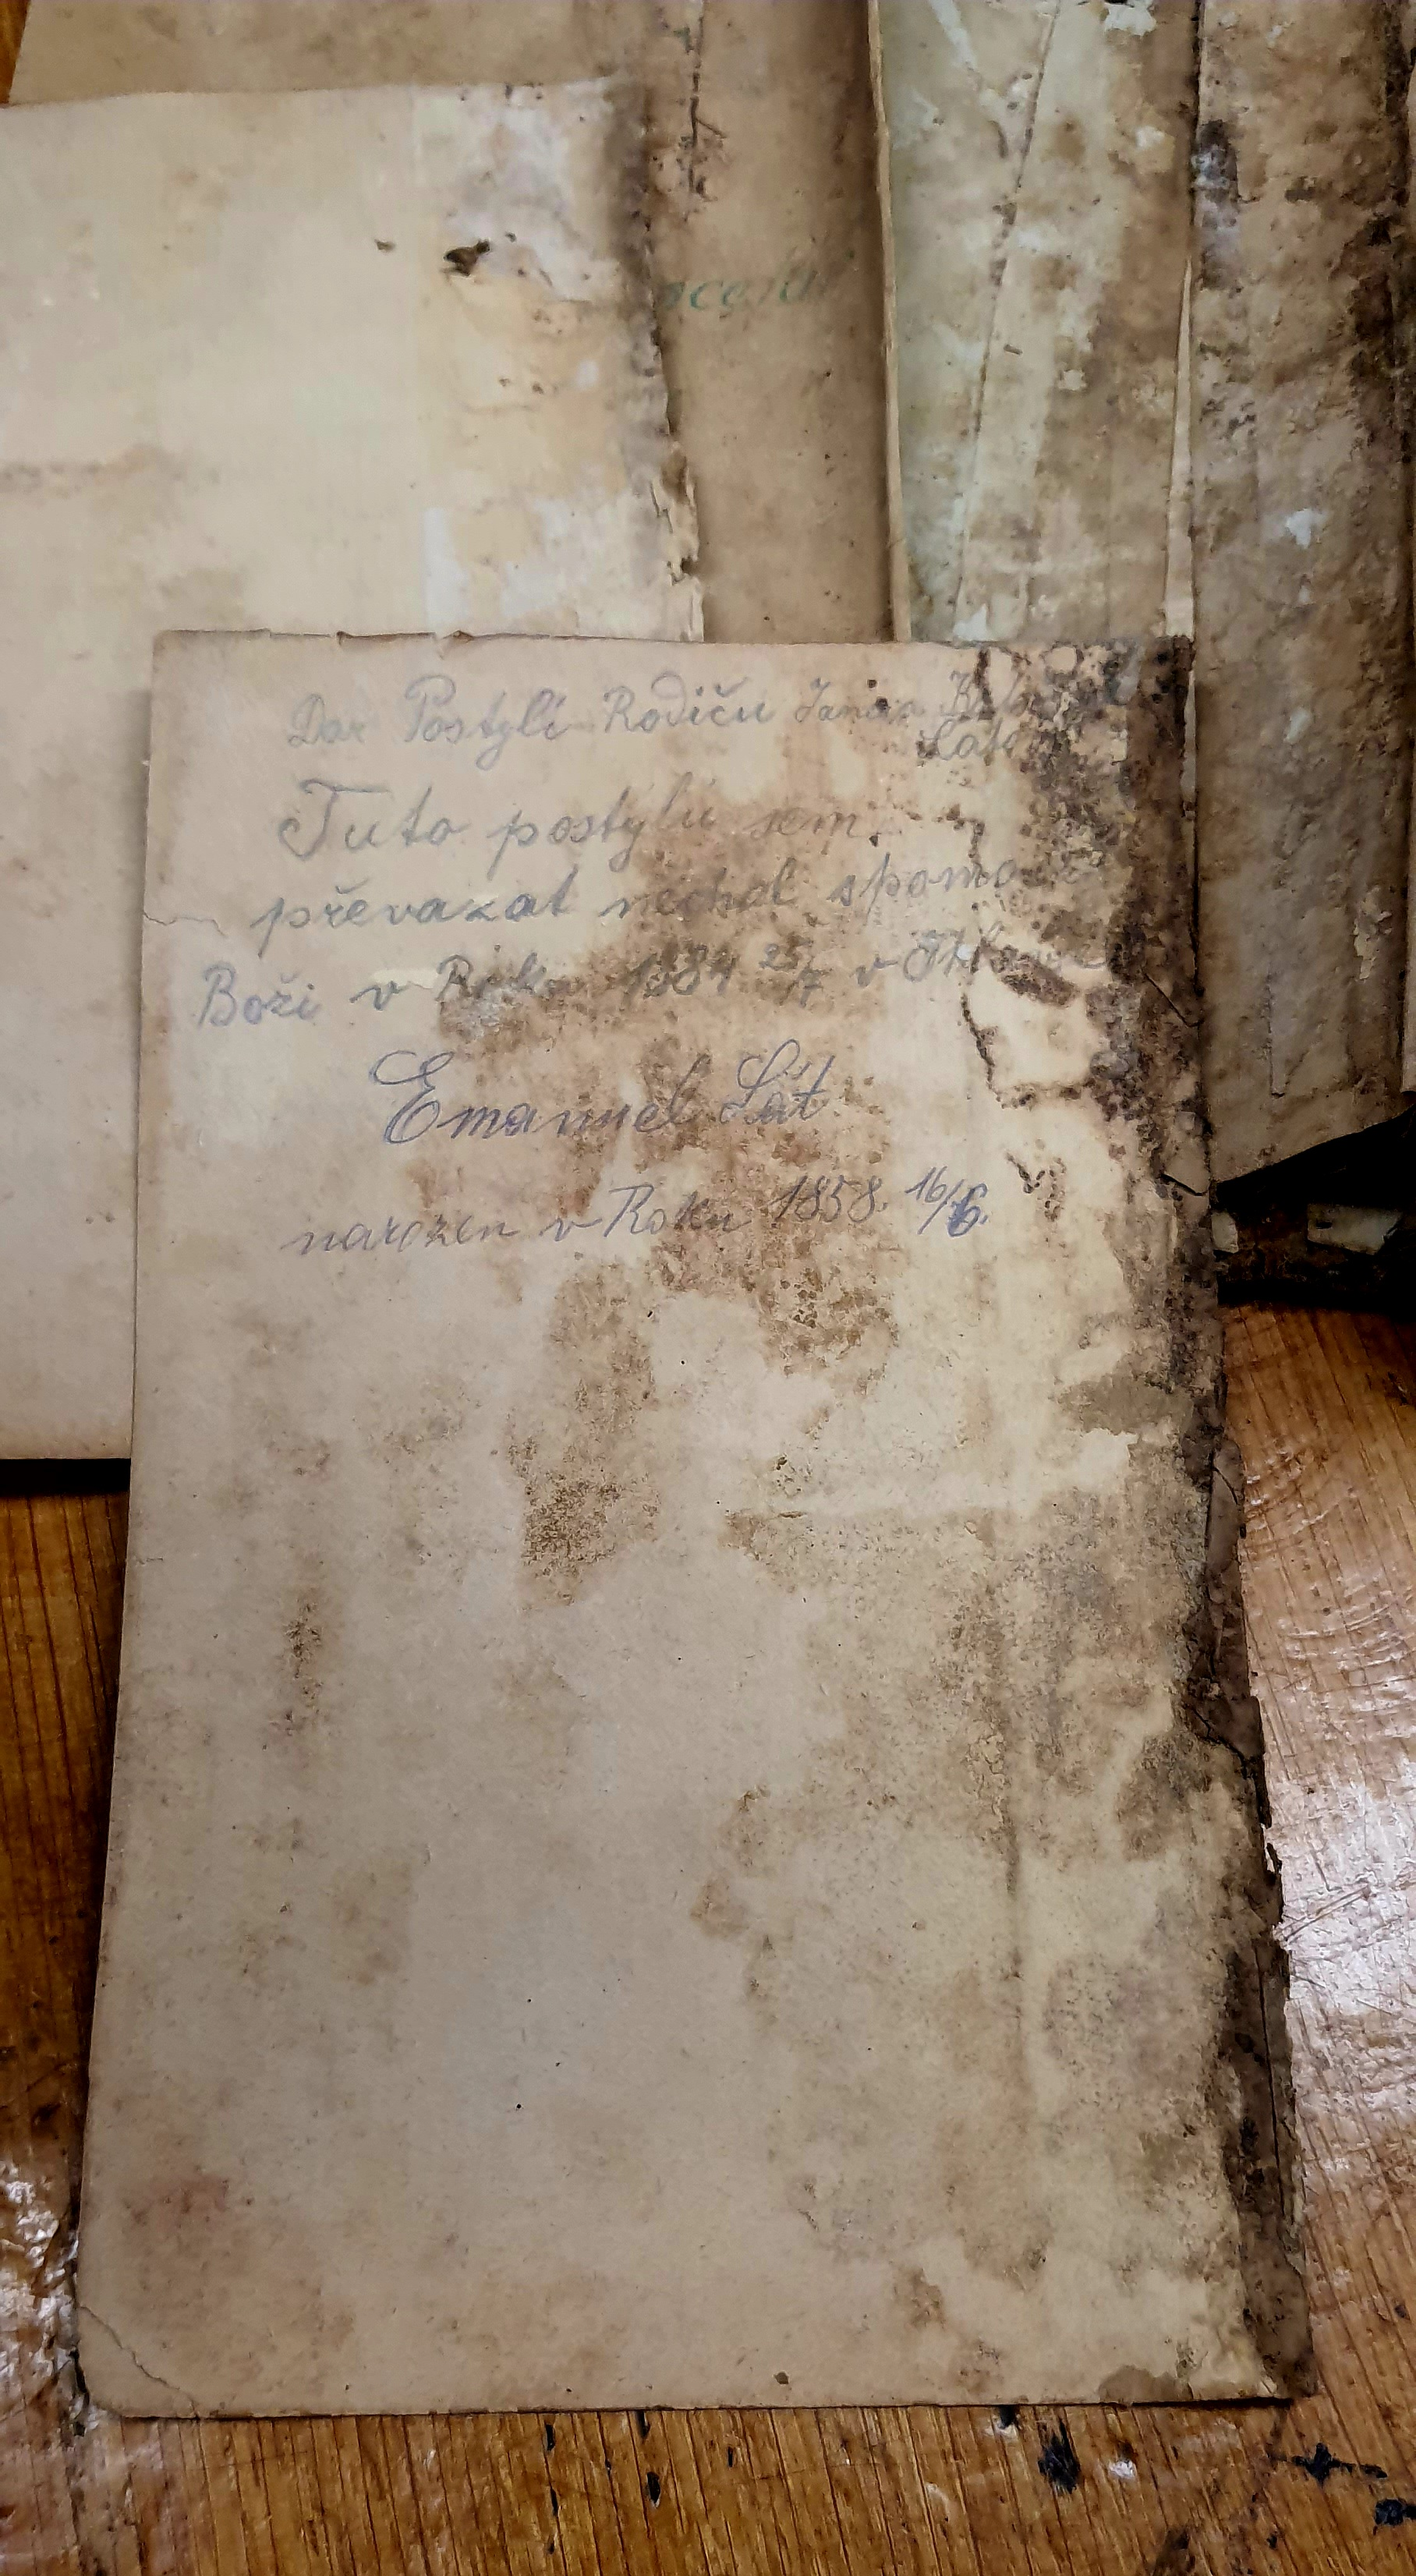 Dar Postyli Rodiču Jana a
Tuto postylu sem
převazat nechal
Boži v Roku 1884 25/7 v
Emanuel Lát
narozen v Roku 1858. 16/6.